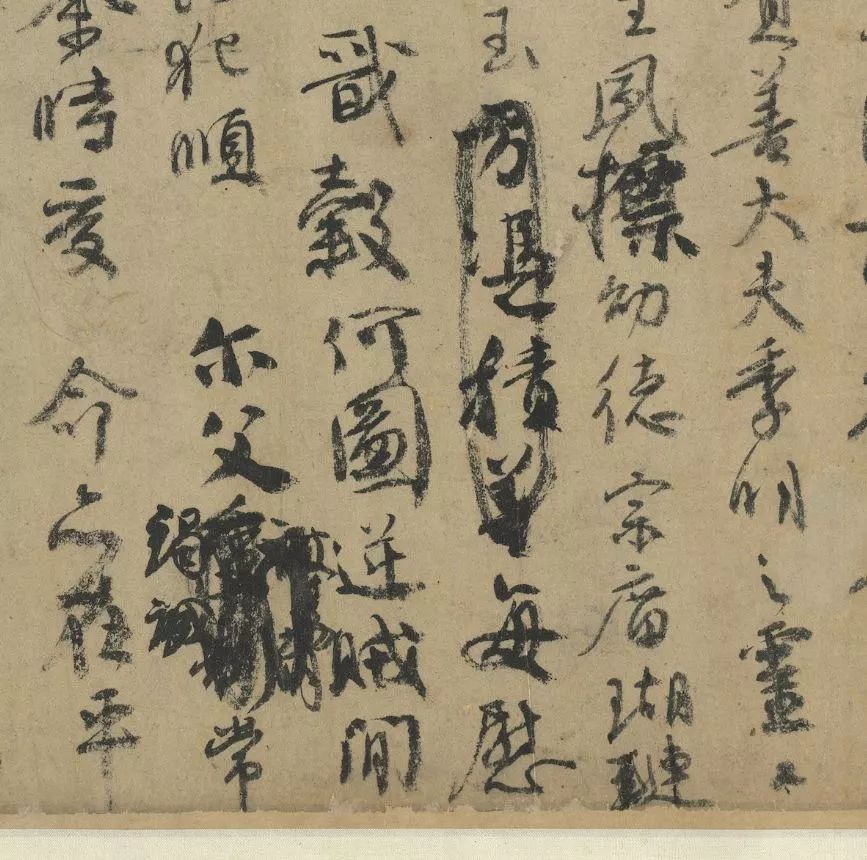 善大夫季明之靈
生夙標幼德宗庿瑚璉
玉方憑積善每慰
戩穀何圖逆賊閒
犯順尔父竭誠常
余時受命亦在平